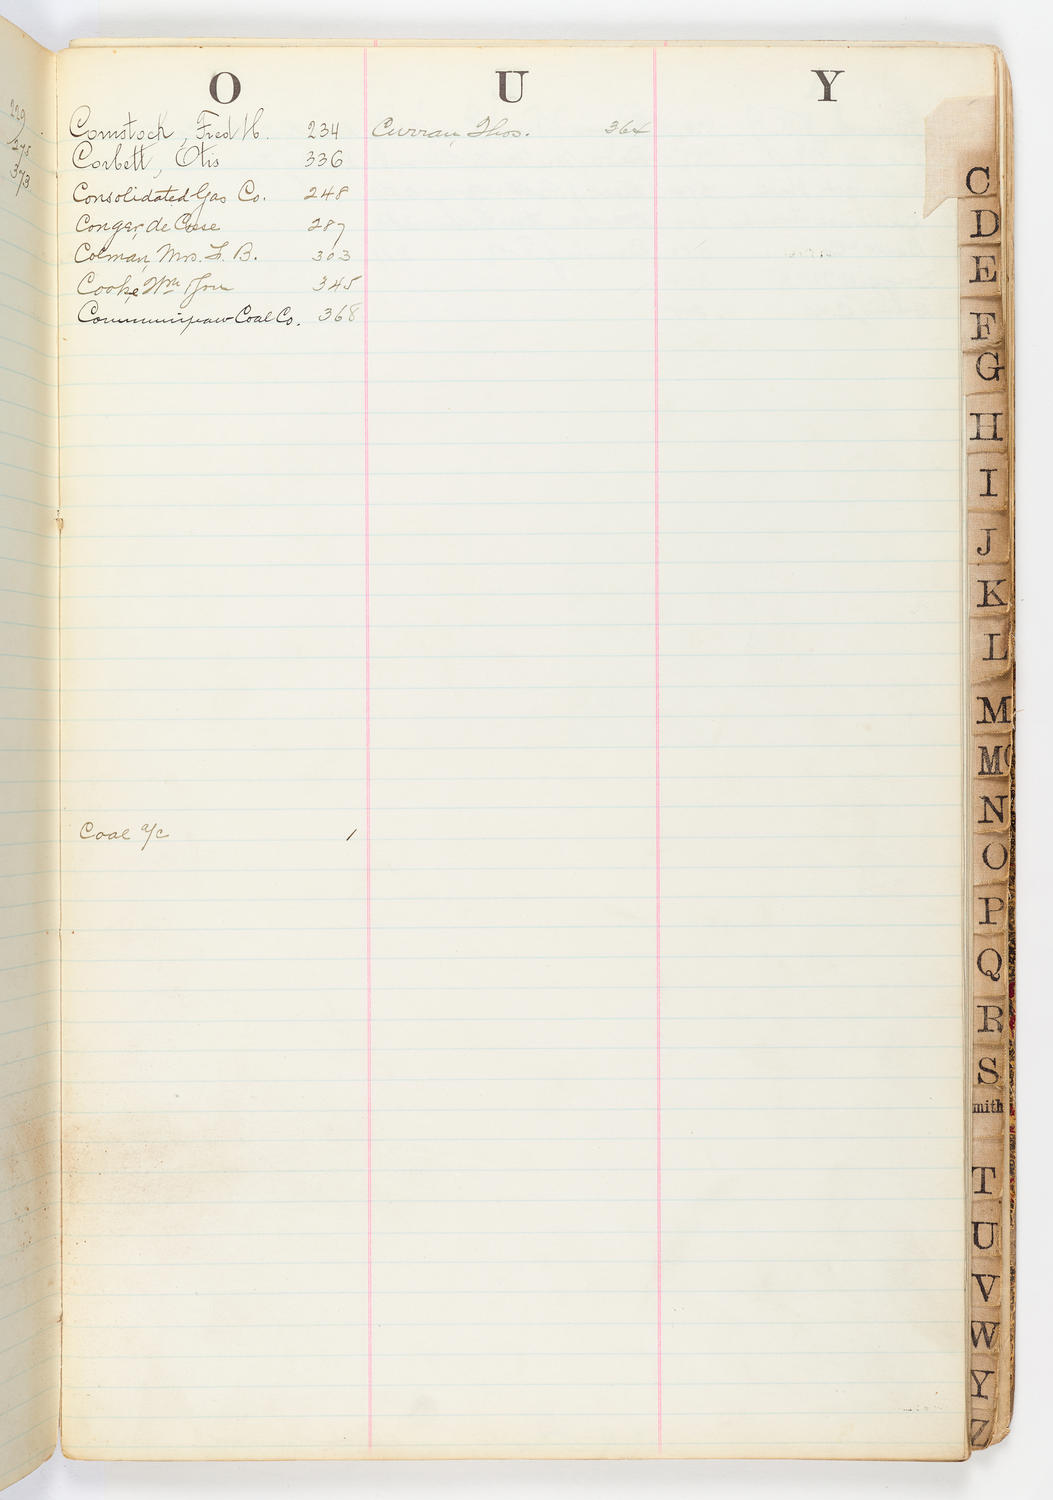 229
275
373
O U Y
Comstock, Fred H. 234
Corbett, Otis 336
Consolidated Gas Co. 248
Conger, de Crese 287
Colman, Mrs. F. B. 303
Cooke, Wm & Son 345
Communipaw Coal Co. 368
Coal a/c 1
Curran, Thos. 364
C
D
E
F
G
H
I
J
K
L
M
Mc
N
O
P
Q
R
S
mith
T
U
V
W
Y
Z